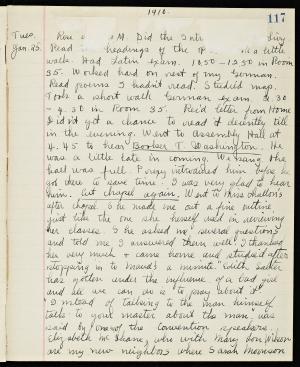 1910.
117
Tues.
Jan. 25.
Rose M. Did the Livy
Read headings of the a little
walk. Had Latin exam. 10.50 - 12.50 in Room
35. Worked hard on rest of my German.
Read poems I hadn't read. Studied map.
Took a short walk. German exam. 2.30
- 4.30 in Room 35. Rec'd letter from Home
& did not get a chance to read it decently till
in the evening. Went to Assembly Hall at
4.45 to hear Booker T. Washington. He
was a little late in coming. We sang the
hall was full. entertained him before he
got there in same time. I was very glad to hear
him. Cut chapel again. Went to Miss
after chapel. She made me out a fine outline
just like the one she herself used in reviewing
her classes. She asked me several questions
and told me I answered them well. I thanked
her very much & came home and studied after
stopping in to Maud's a minute.
has gotten under the influence of a bad
and all we can do is to pray about it.
"Instead of talking to the man himself
talk to your master about the man" was
said by one of the convention speakers.
Elizabeth McShane, who with Mary Lou Wilson
are my new neighbors where Sarah Morrison